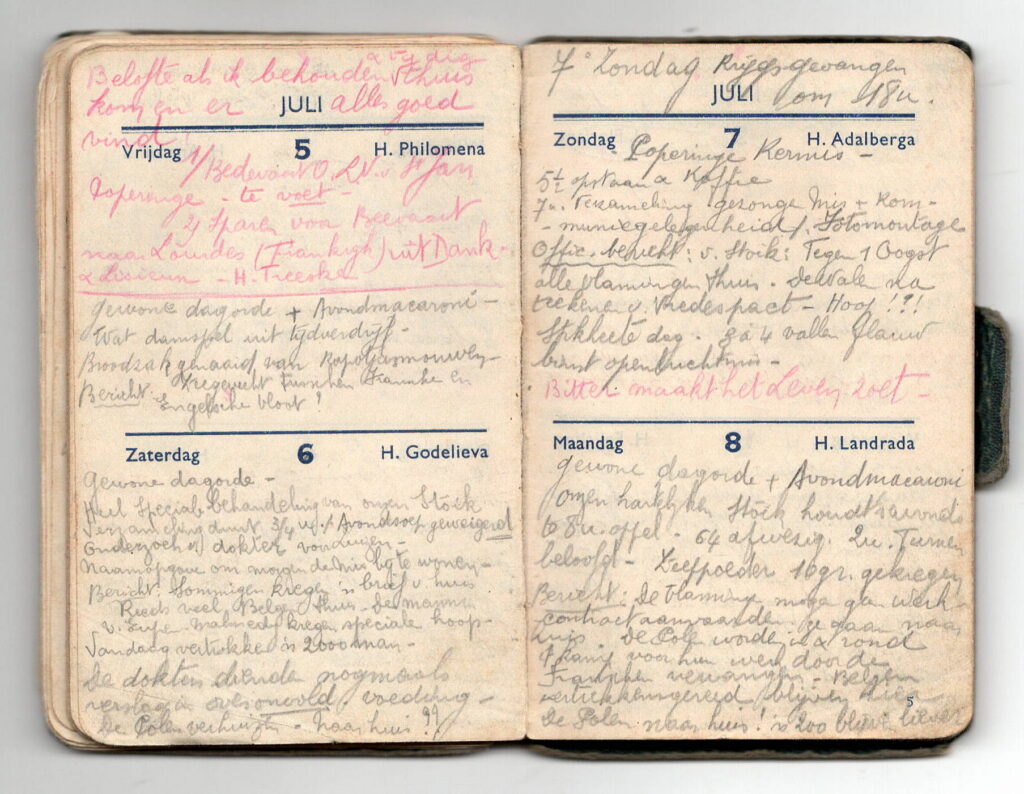 Belofte als ik behouden & tydig thuis
kom en er alles goed
vind!
JULI
Vrijdag 5 H. Philomena
1/ Bedevaart O.L.V. v St Jan
Poperinge - te voet -
2/ Sparen voor Beevaart
naar Lourdes (Frankryk) uit Dank
& Lisieux - H. Treeske
gewone dagorde + Avondmacaroni -
Wat damspel uit tydverdryf -
Broodzak genaaid van
Bericht: Zeegevecht tusschen Franske en
Engelsche vloot!
Zaterdag 6 H. Godelieva
Gewone dagorde -
Heel speciale behandeling van onzen Stoek
duurt 3/4 u. / Avondsoep geweigerd
Onderzoek v dokter
Naamopgave om morgen de mis by te wonen -
Bericht: Sommigen kregen brief v huis
Reeds veel Belgen thuis - De mannen
v. Eupen - Malmedy kregen speciale
Vandaag vertrokken 2000 man -
De dokters dienden nogmaals
verslag in voeding -
De Polen verhuizen - Naar huis ??
7° Zondag Krijgsgevangen
JULI om 18 u.
Zondag 7 H. Adalberga
Poperinge Kermis -
5½ opstaan & Koffie
7 u. Verzameling gezongen Mis + Kom-
muniegelegenheid / Fotomontage
Offic. bericht: v. Stoïk: Tegen 1 Oogst
alle Vlamingen thuis.
v. Vredespact - Hoop!?!
Stikheete dag. 3 à 4 vallen flauw
openluchtmis -
Bitter maakt het Leven zoet -
Maandag 8 H. Landrada
gewone dagorde + Avondmacaroni
onzen Stoïk houdt savonds
to 8 u. appel - 64 afwezig. 2 u. Turnen
beloofd - Zeeppoeder 16 gr. gekregen
Bericht: De Vlamingen mogen gen werk-
contract aanvaarden. ze gaan naar
huis De Polen worden
kamp voor hun werk door de
Franschen vervangen - Belgen
vertrekkensgereed blyven hier
De Polen naar huis! 200 blyven liever
5